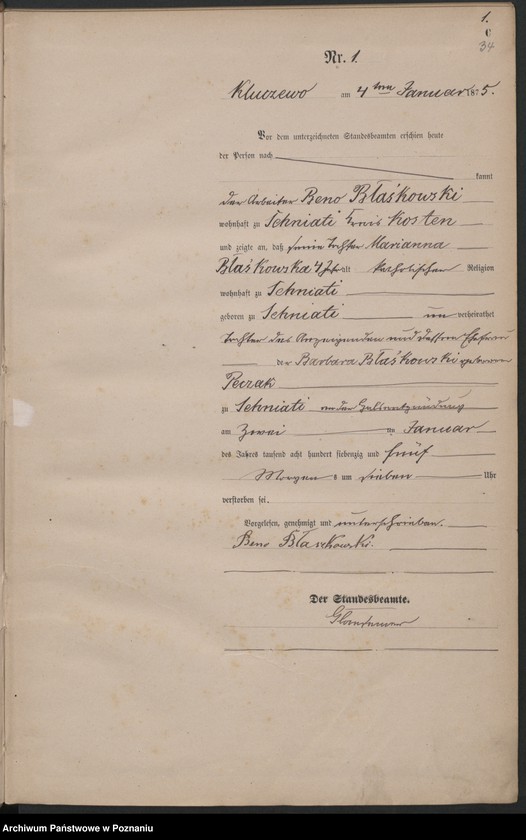 1.
C
34
Nr. 1.
Kluczewo am 4 ten Januar 1875.
Vor dem unterzeichneten Standesbeamten erschien heute
der Person nach
kannt
der Arbeiter Beno Błaśkowski
wohnhaft zu Sehniati Kreis Kosten
und zeigte an, daß seine Tochter Marianna
Błaśkowska 4 J. alt katholischer Religion
wohnhaft zu Sehniati
geboren zu Sehniati un verheirathet
Tochter des Anzeigenden und dessen Ehefrau
der Barbara Błaśkowski geborene
Peczak
zu Sehniati an der Halsentzündung
am Zwei ten Januar
des Jahres tausend acht hundert siebenzig und fünf
Morgens um sieben Uhr
verstorben sei.
Vorgelesen, genehmigt und unterschrieben.
Beno Błaszkowski.
Der Standesbeamte.
Archiwum Państwowe w Poznaniu